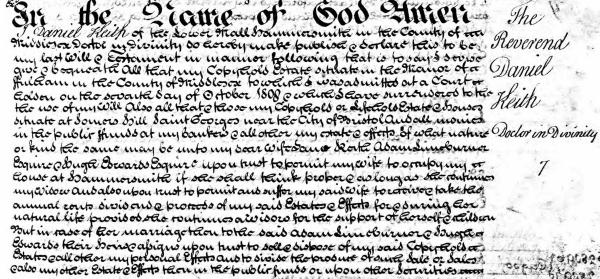 In the Name of God Amen
I Daniel Keith of the Lower Mall Hammersmith in the County of
Middlesex Doctor in Divinity do hereby make publish & declare this to be
my last Will & Testament in manner following that is to say I devise
give & bequeath All that my Copyhold Estate situate in the Manor of
Fulham in the County of Middlesex to which I was admitted at a Court
holden on the seventh day of October 1808 & which I have surrendered to the
the use of my Will Also all that & those my Copyhold or Estate & House
situate at Somers Hill Saint Georges near the City of Bristol And all monies
in the public ffunds at my bankers & all other my estate & effects of what nature
or kind the same may be unto my dear wife Keith Adam
Esquire & Hugh Edwards Esquire upon trust to permit my wife to occupy my
house at Hammersmith if she shall think proper & as long as she continues
my Widow And also upon trust to permit and suffer my said wife to receive & take the
annual rents dividends & proceeds of my said Estates & Effects for & during her
natural life provided she continues a widow for the support of herself & children
But in case of her marriage then to the said Adam & Hugh
Edwards their Heirs & assigns upon trust to sell & dispose of my said Copyhold
Estate & all other my personal Effects and to divide the produce of such sale or sales
& also my other Estate & Effects then in the public funds or upon other securities
The
Reverend
Daniel
Keith
Doctor in Divinity
7